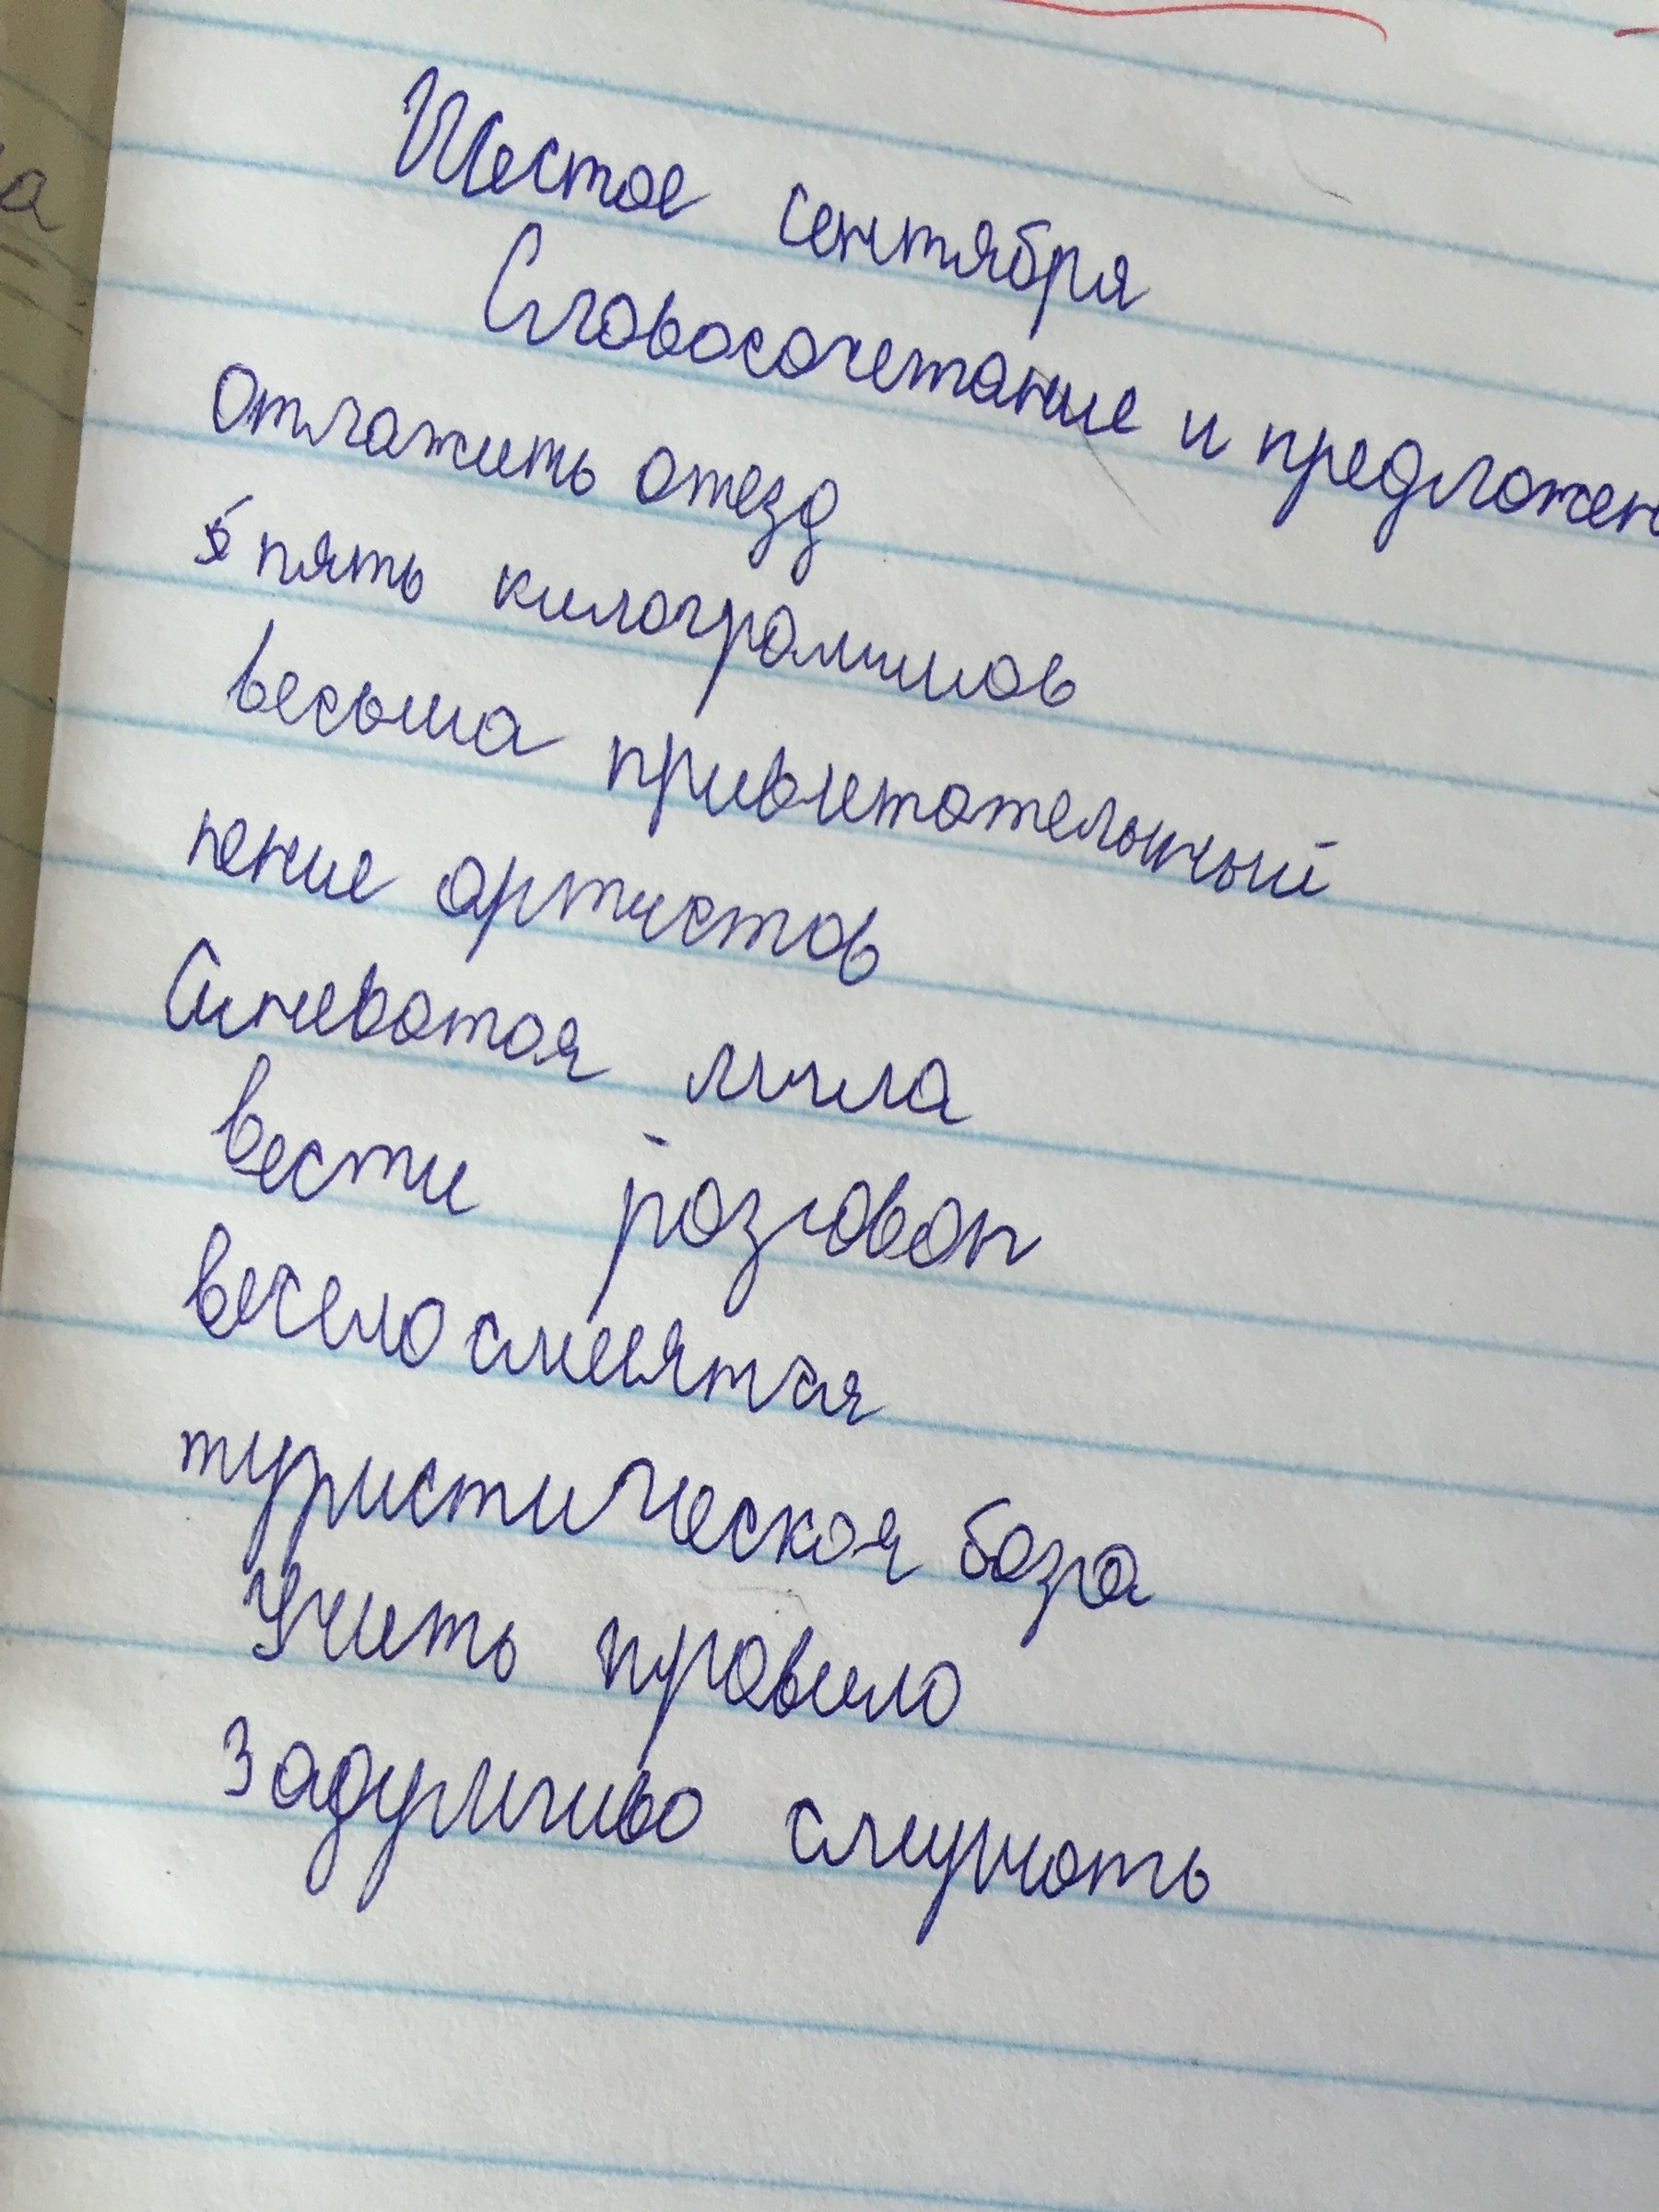 Шестое сентября
Словосочетание и предложен
Отложить отезд
пять килограммов
весьма привлетательный
пение артистов
Синеватая мгла
вести разговоп
весело смеятся
туристическая база
Учить правило
Задумчиво слушать